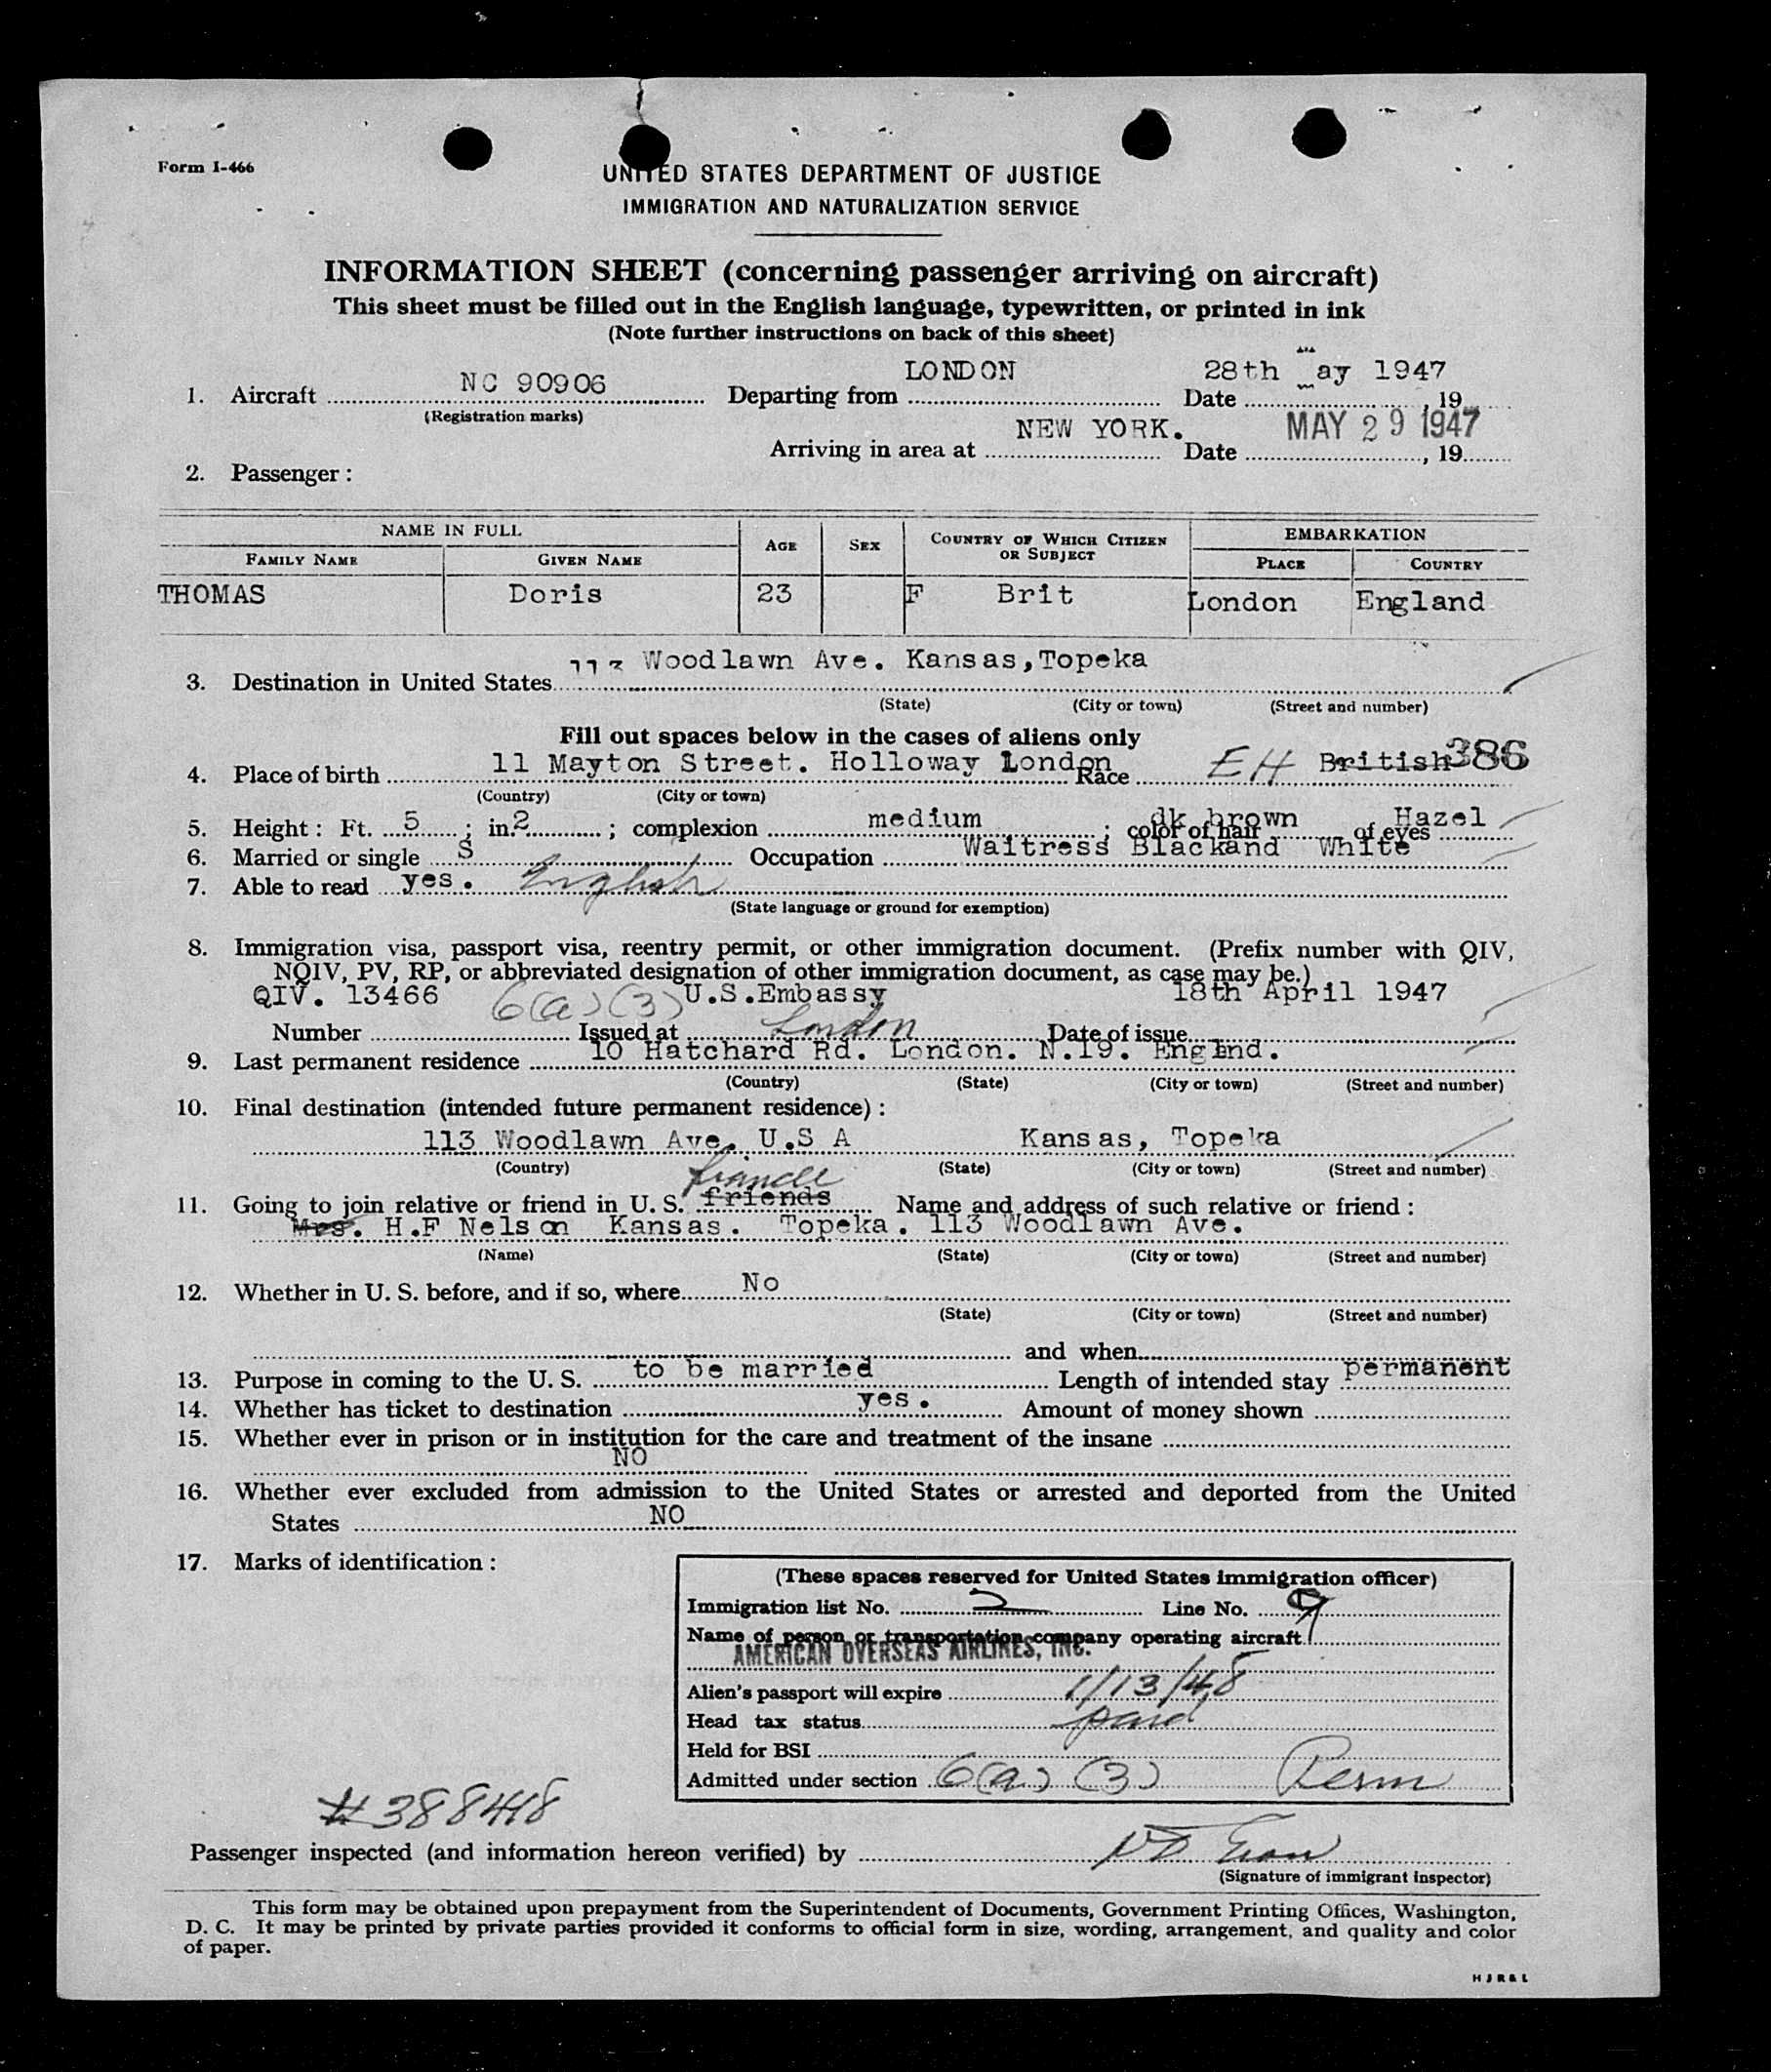 Form I-466
UNITED STATES DEPARTMENT OF JUSTICE
IMMIGRATION AND NATURALIZATION SERVICE
INFORMATION SHEET (concerning passenger arriving on aircraft)
This sheet must be filled out in the English language, typewritten, or printed in ink
(Note further instructions on back of this sheet)
1. Aircraft NC 90906 Departing from LONDON Date 28th May 1947, 19
(Registration marks)
Arriving in area at NEW YORK. Date MAY 29 1947, 19
2. Passenger:
NAME IN FULL AGE SEX COUNTRY OF WHICH CITIZEN OR SUBJECT EMBARKATION
FAMILY NAME GIVEN NAME PLACE COUNTRY
THOMAS Doris 23 F Brit London England
3. Destination in United States 113 Woodlawn Ave. Kansas,Topeka
(State) (City or town) (Street and number)
Fill out spaces below in the cases of aliens only
4. Place of birth 11 Mayton Street. Holloway London Race EH British 386
(Country) (City or town)
5. Height: Ft. 5; in. 2; complexion medium; color of hair dk brown of eyes Hazel
6. Married or single S Occupation Waitress Blackand White
7. Able to read yes. English
(State language or ground for exemption)
8. Immigration visa, passport visa, reentry permit, or other immigration document. (Prefix number with QIV,
NQIV, PV, RP, or abbreviated designation of other immigration document, as case may be.)
QIV. 13466 6(a)(3) U.S.Embassy 18th April 1947
Number Issued at London Date of issue
9. Last permanent residence 10 Hatchard Rd. London. N.19. England.
(Country) (State) (City or town) (Street and number)
10. Final destination (intended future permanent residence):
113 Woodlawn Ave. U.S A Kansas, Topeka
(Country) (State) (City or town) (Street and number)
11. Going to join relative or friend in U. S. friends fiance Name and address of such relative or friend:
Mrs. H.F Nelson Kansas. Topeka. 113 Woodlawn Ave.
(Name) (State) (City or town) (Street and number)
12. Whether in U. S. before, and if so, where No
(State) (City or town) (Street and number)
and when
13. Purpose in coming to the U. S. to be married Length of intended stay permanent
14. Whether has ticket to destination yes. Amount of money shown
15. Whether ever in prison or in institution for the care and treatment of the insane
NO
16. Whether ever excluded from admission to the United States or arrested and deported from the United
States NO
17. Marks of identification:
(These spaces reserved for United States immigration officer)
Immigration list No. 2 Line No. 9
Name of person or transportation company operating aircraft
AMERICAN OVERSEAS AIRLINES, INC.
Alien's passport will expire 1/13/48
Head tax status paid
Held for BSI
Admitted under section 6(a)(3) Perm
#388418
Passenger inspected (and information hereon verified) by
(Signature of immigrant inspector)
This form may be obtained upon prepayment from the Superintendent of Documents, Government Printing Offices, Washington,
D. C. It may be printed by private parties provided it conforms to official form in size, wording, arrangement, and quality and color
of paper.
H J R & L